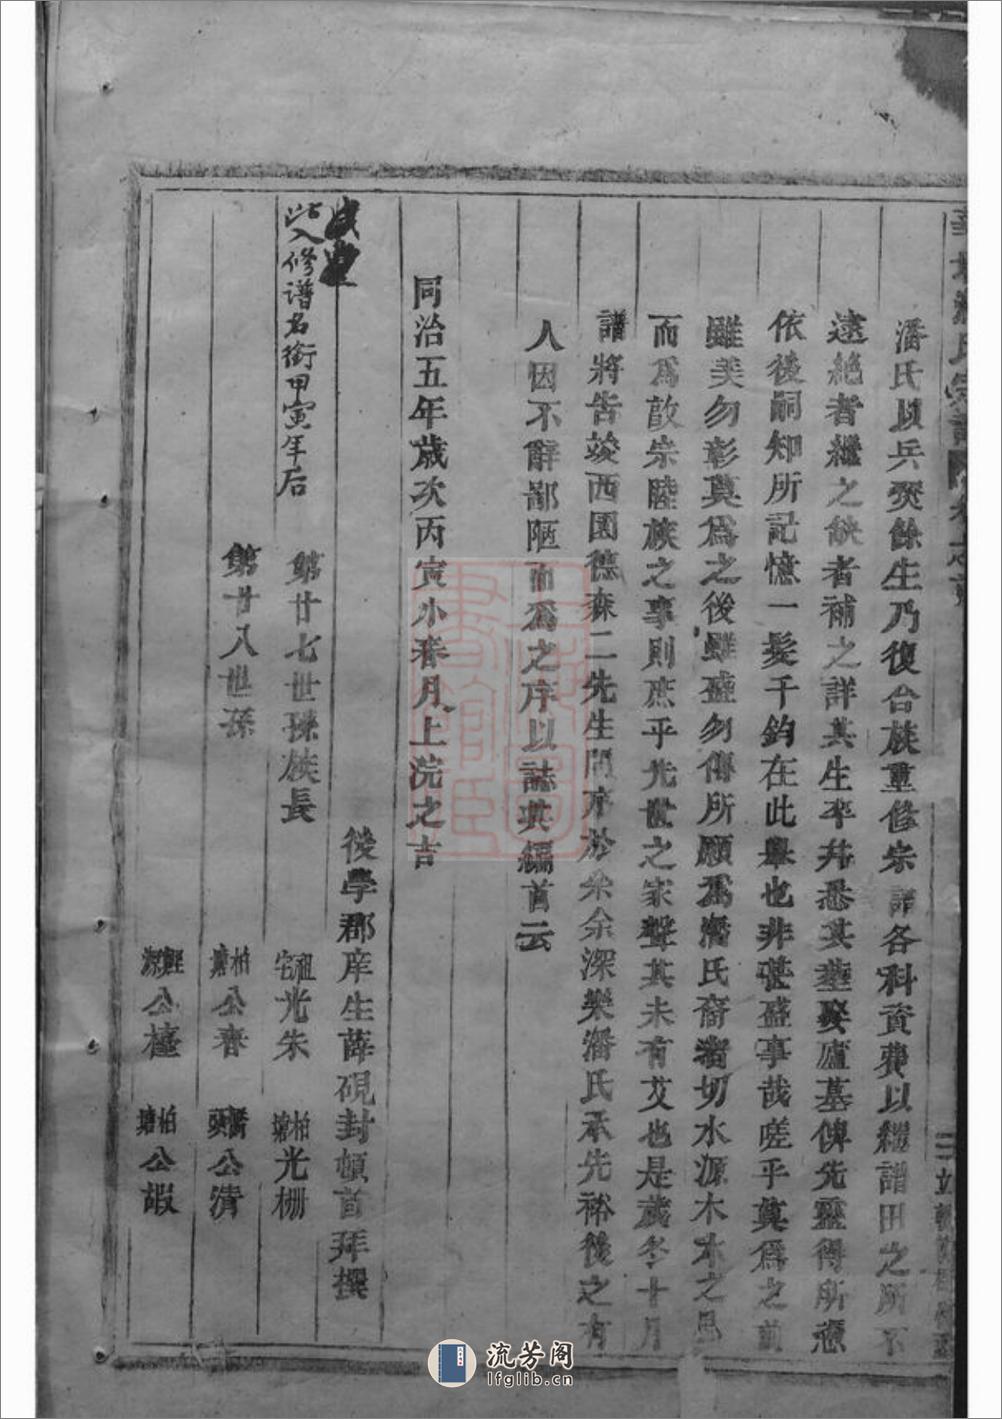 潘氏以兵燹餘生乃復合族重修宗譜各科資費以繼譜田之所不
逮絶者繼之缺者補之詳其生卒并悉其塟娶廬墓俾先靈得所憑
依後嗣知所記憶一髮千鈞在此舉也非甚盛事哉嗟乎莫爲之前
雖美勿彰莫爲之後雖盛勿傳所願爲潘氏裔者切水源木本之思
而爲敬宗睦族之事則庶乎先世之家聲其未有艾也是歲冬十月
譜將告竣西園德森二先生問序於余余深樂潘氏承先裕後之有
人因不辭鄙陋而爲之序以誌其編首云
同治五年歲次丙寅小春月上浣之吉
後學郡庠生薛硯封頓首拜撰
此入修谱名銜甲寅年后
第廿七世孫族長 祖宅光朱 柏塘光栅
第廿八世孫 柏塘公春 橋頭公清
鯉源公橦 柏塘公嘏
流芳阁
lfglib.cn